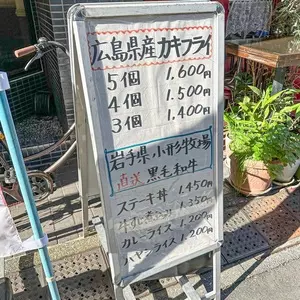 広島県産カキフライ
5個 1,600円
4個 1,500円
3個 1,400円
岩手県小形牧場
直送 黒毛和牛
ステーキ丼 1,450円
1,350円
カレーライス 1,200円
ハヤシライス 1,200円